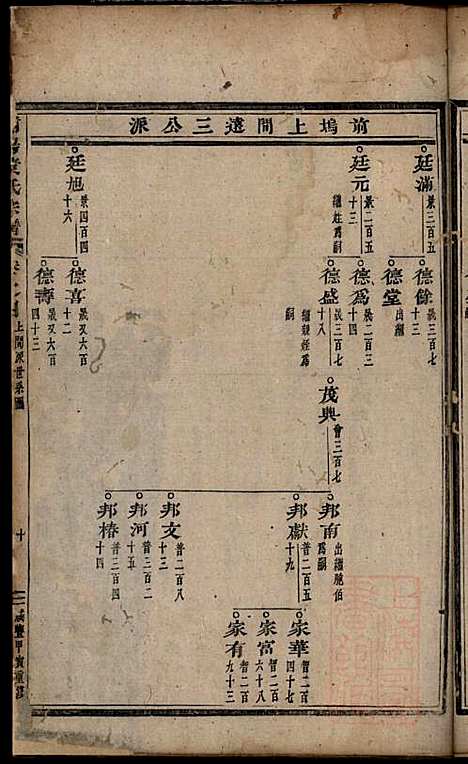 前塢上間遠三公派
廷滿
景三百五
廷元
景二百五
十三
繼姪爲嗣
廷旭
景四百四
十六
德餘
晟三百七
十三
德堂
出繼
德爲
晟二百三
十四
德盛
晟三百七
十八
繼親姪爲
嗣
德喜
晟双六百
十二
德壽
晟双六百
四十三
茂興
會三百七
邦南
出繼胞伯
爲嗣
邦獻
普二百五
十九
邦文
普二百八
十三
邦河
普三百二
十五
邦椿
普三百四
十四
家華
智二百
四十七
家富
智二百
六十八
家有
智二百
九十三
氏宗譜
上間派世系圖
十
咸豐甲寅重修